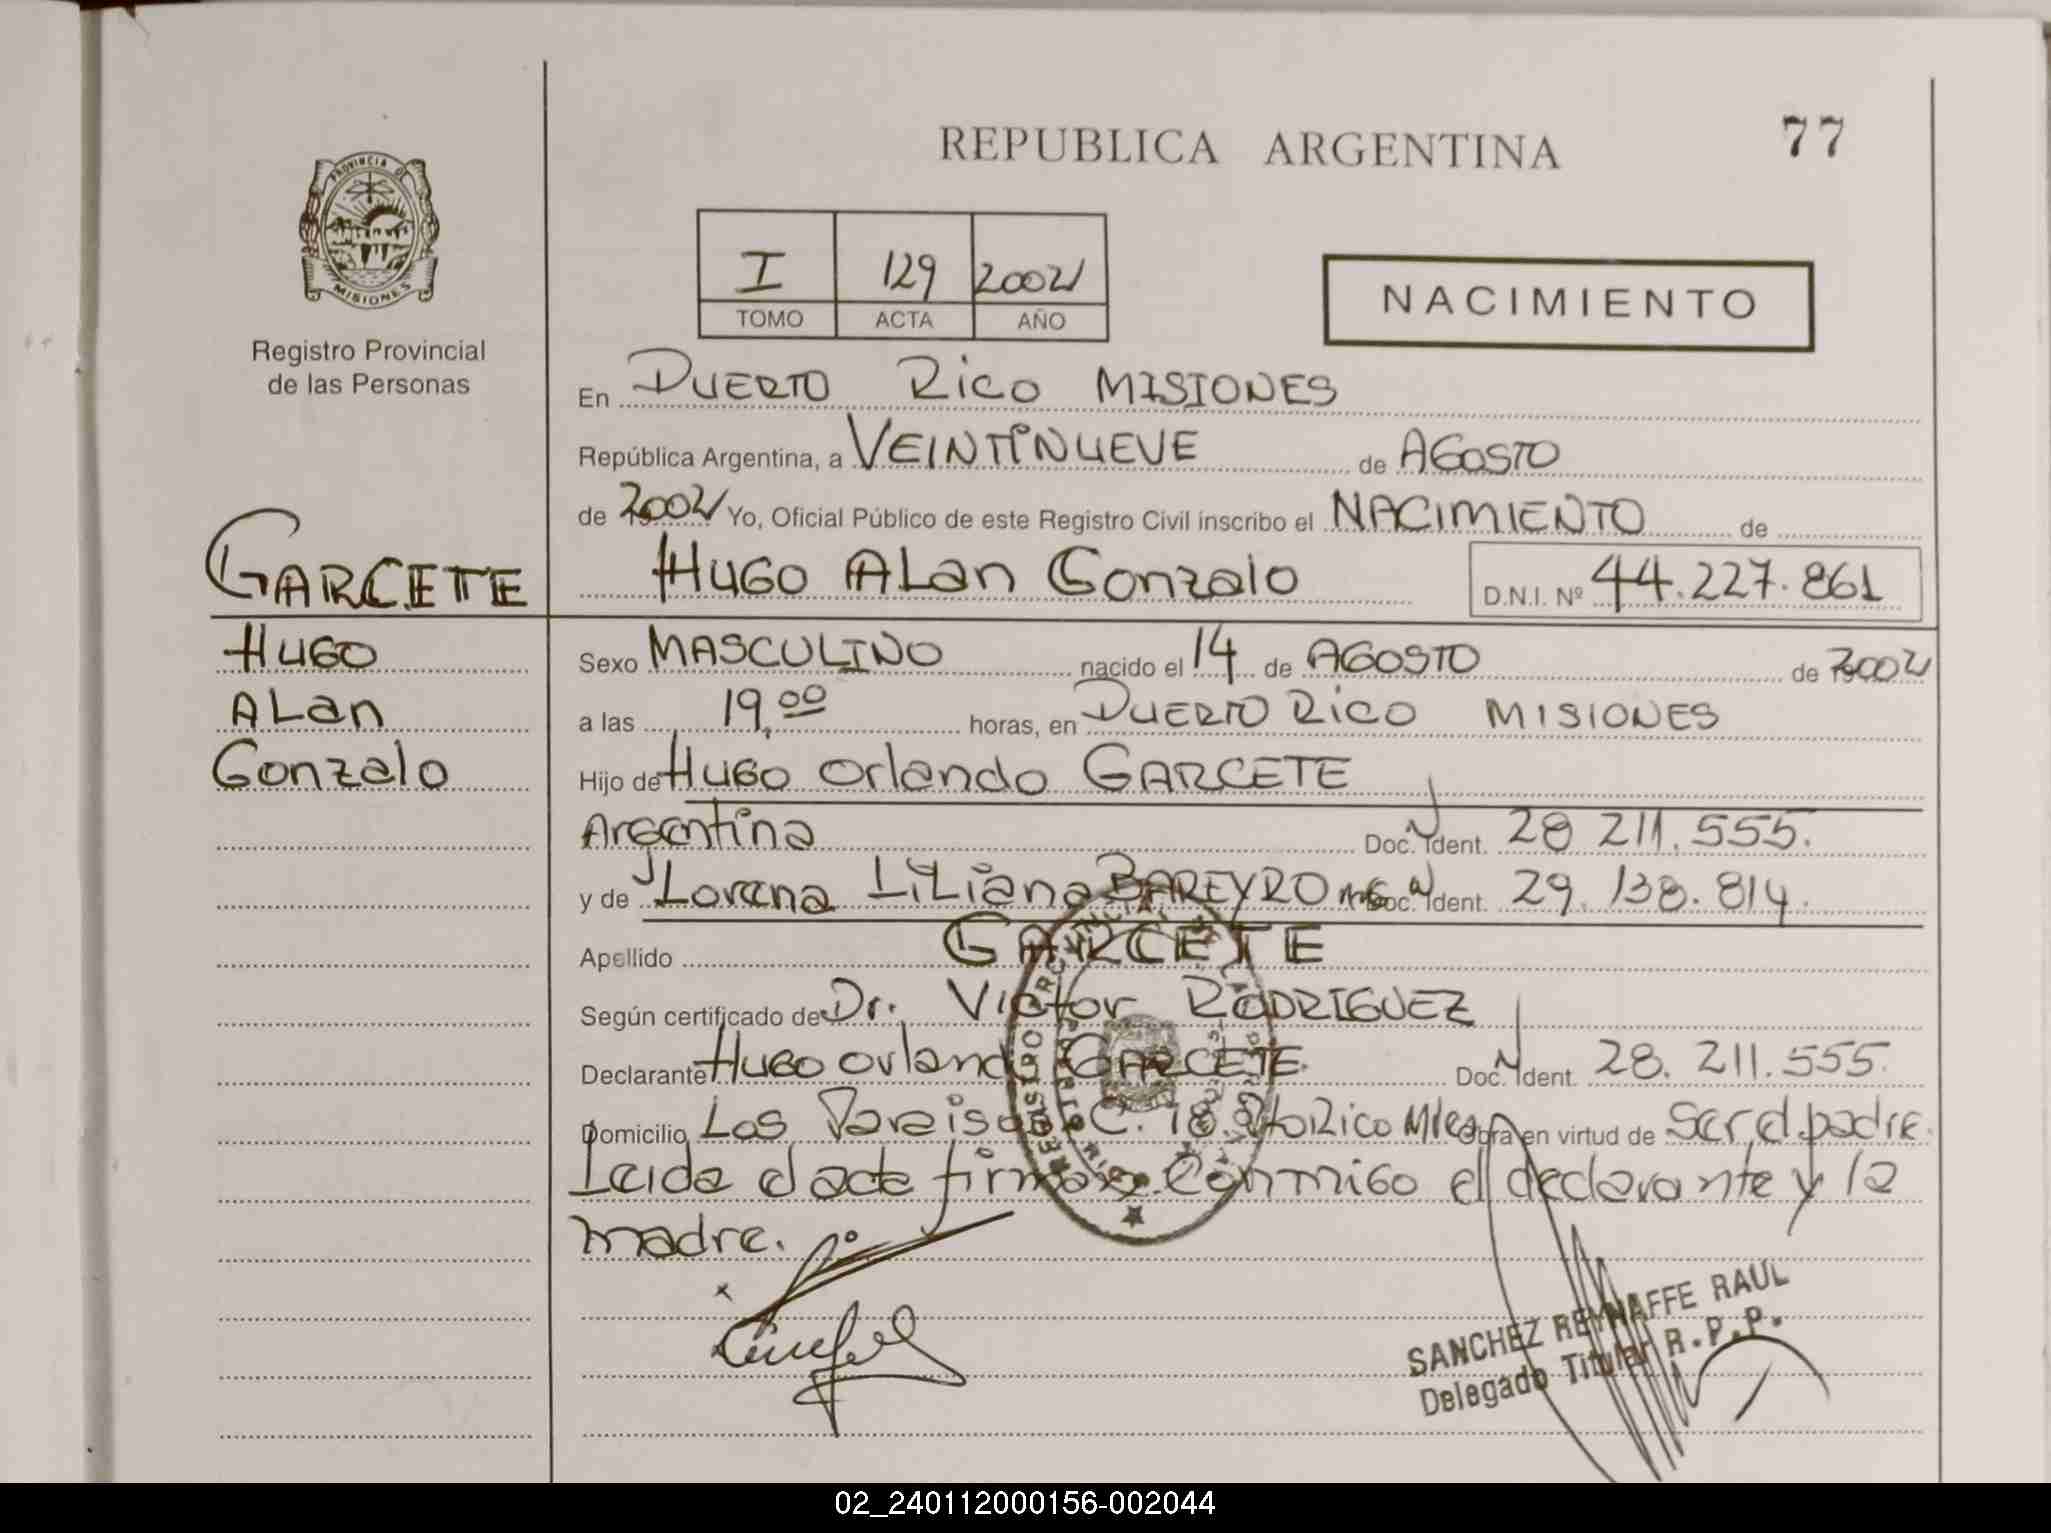 REPUBLICA ARGENTINA
77
PROVINCIA DE
MISIONES
Registro Provincial
de las Personas
I 129 2002
TOMO ACTA AÑO
NACIMIENTO
En PUERTO RICO MISIONES
República Argentina, a VEINTINUEVE de AGOSTO
de 2002 Yo, Oficial Público de este Registro Civil inscribo el NACIMIENTO de
GARCETE
HUGO ALan Gonzalo
D.N.I. Nº 44.227.861
HUGO
ALan
Gonzalo
Sexo MASCULINO nacido el 14 de AGOSTO de 2002
a las 19,00 horas, en PUERTO RICO MISIONES
Hijo de HUGO Orlando GARCETE
Argentina Doc. Ident. 28 211.555.
y de Lorena LiLiana BAREYRO Doc. Ident. 29.138.814.
Apellido GARCETE
Según certificado de Dr. Victor RODRIGUEZ
Declarante HUGO Orlando GARCETE. Doc. Ident. 28.211.555.
Domicilio Los Paraisos C. 18. Pto Rico Mnes Obra en virtud de ser el padre.
Leida el acta firman conmigo el declarante y la
madre.
SANCHEZ REYNAFFE RAUL
Delegado Titular R.P.P.
02_240112000156-002044